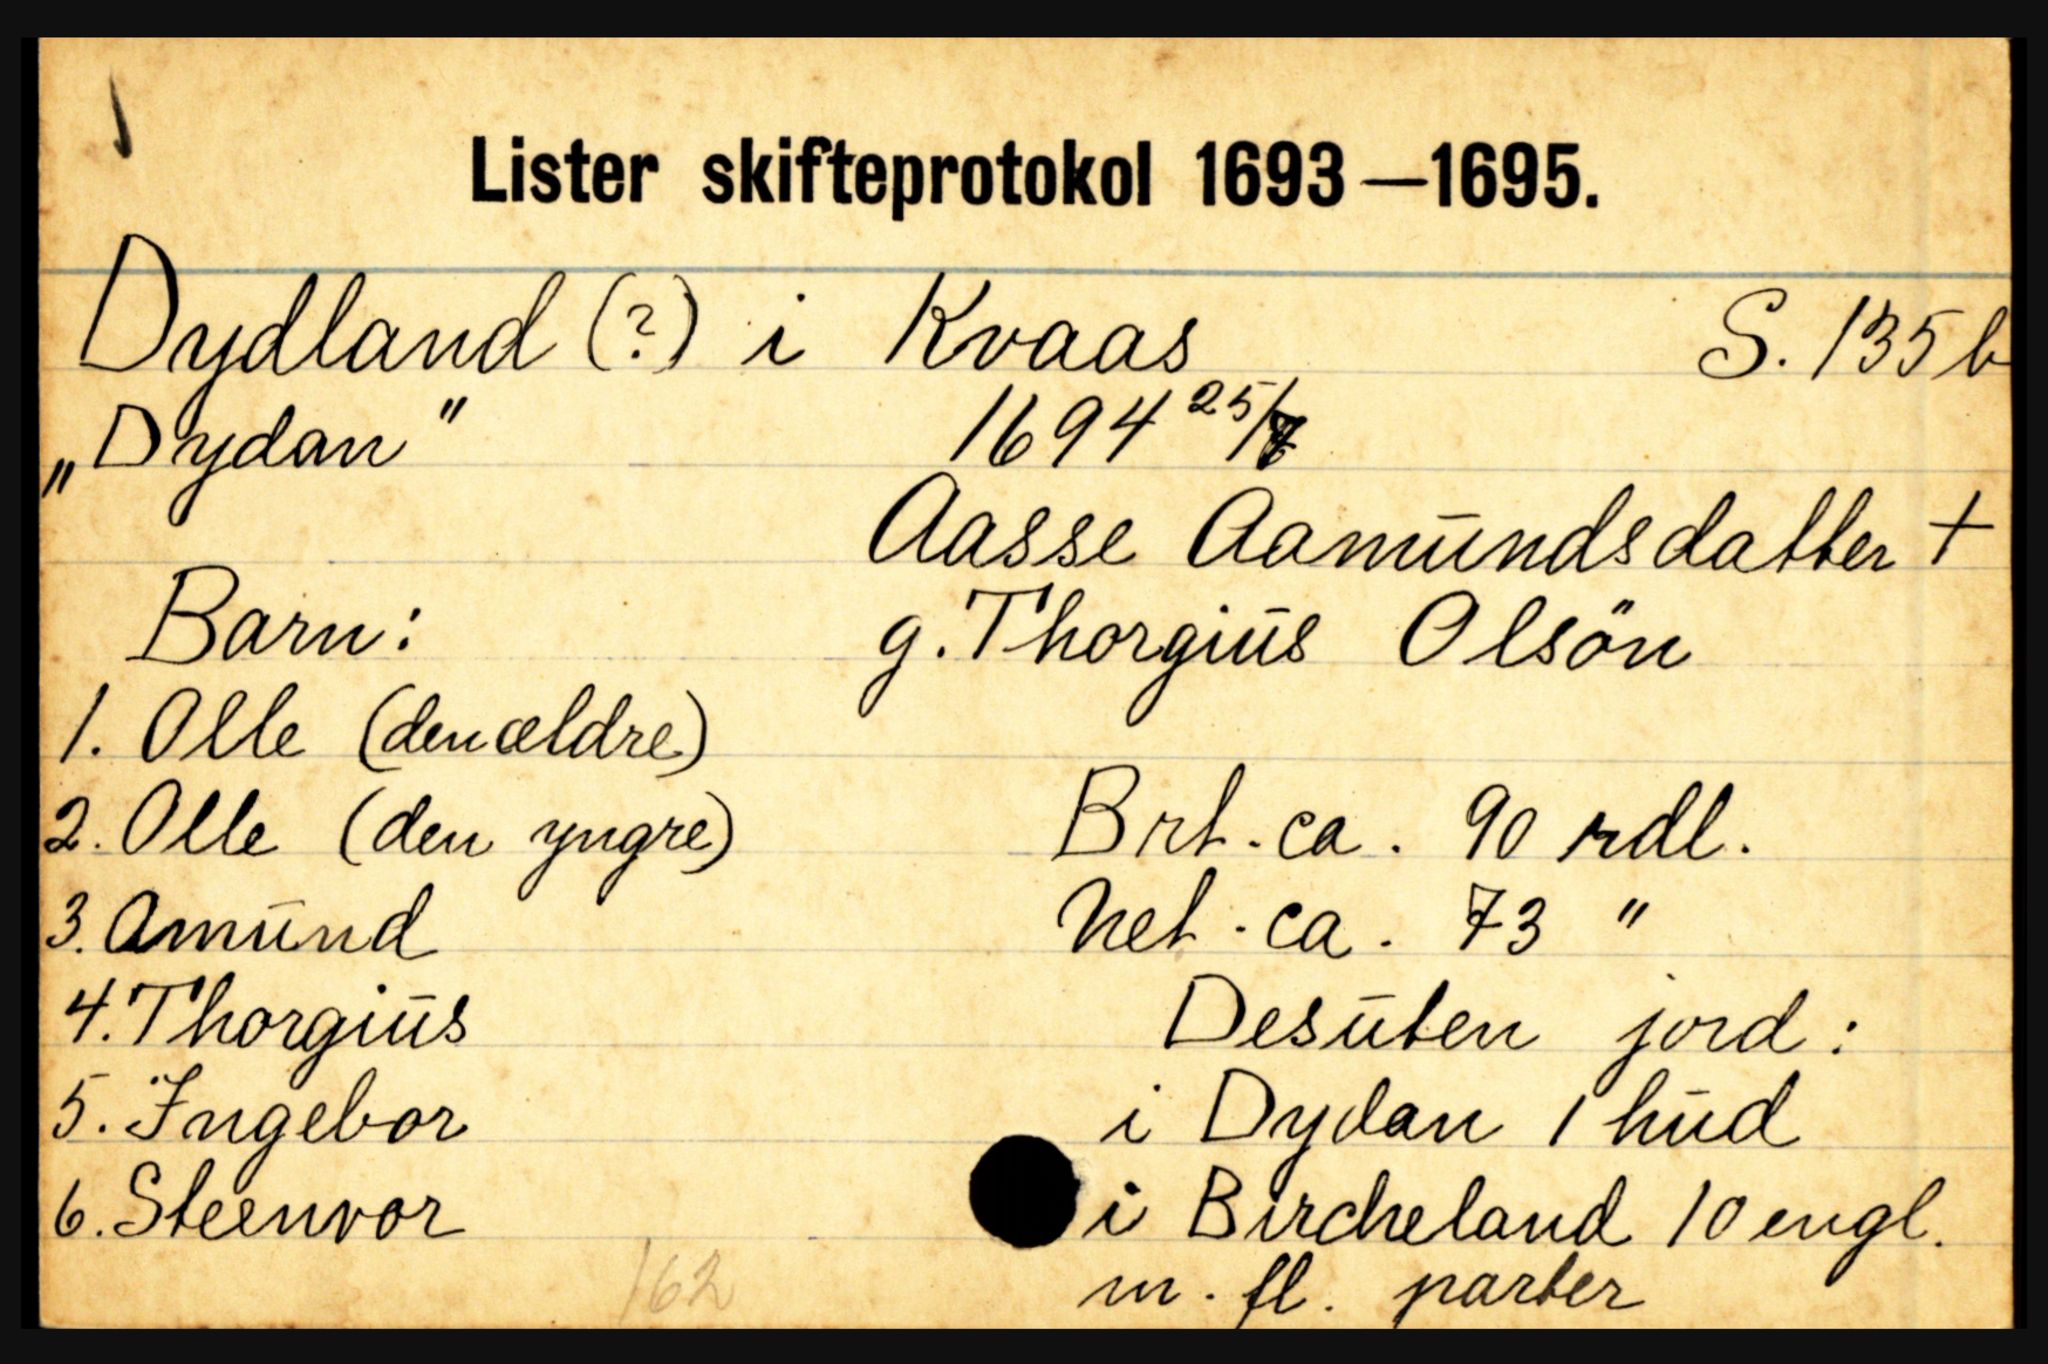 Lister skifteprotokol 1693—1695.
Dydland (?) i Kvaas S. 135 b
„Dydan" 1694 25/
Aasse Aamūndsdatter +
Barn: g. Thorgiūs Olsön
1. Olle (den ældre)
2. Olle (den yngre) Brt. ca. 90 rdl.
3. Amūnd Net. ca. 73 "
4. Thorgiūs Desūten jord:
5. Ingebor i Dydan 1 hūd
6. Steenvor i Bircheland 10 engl.
162 m. fl. parter